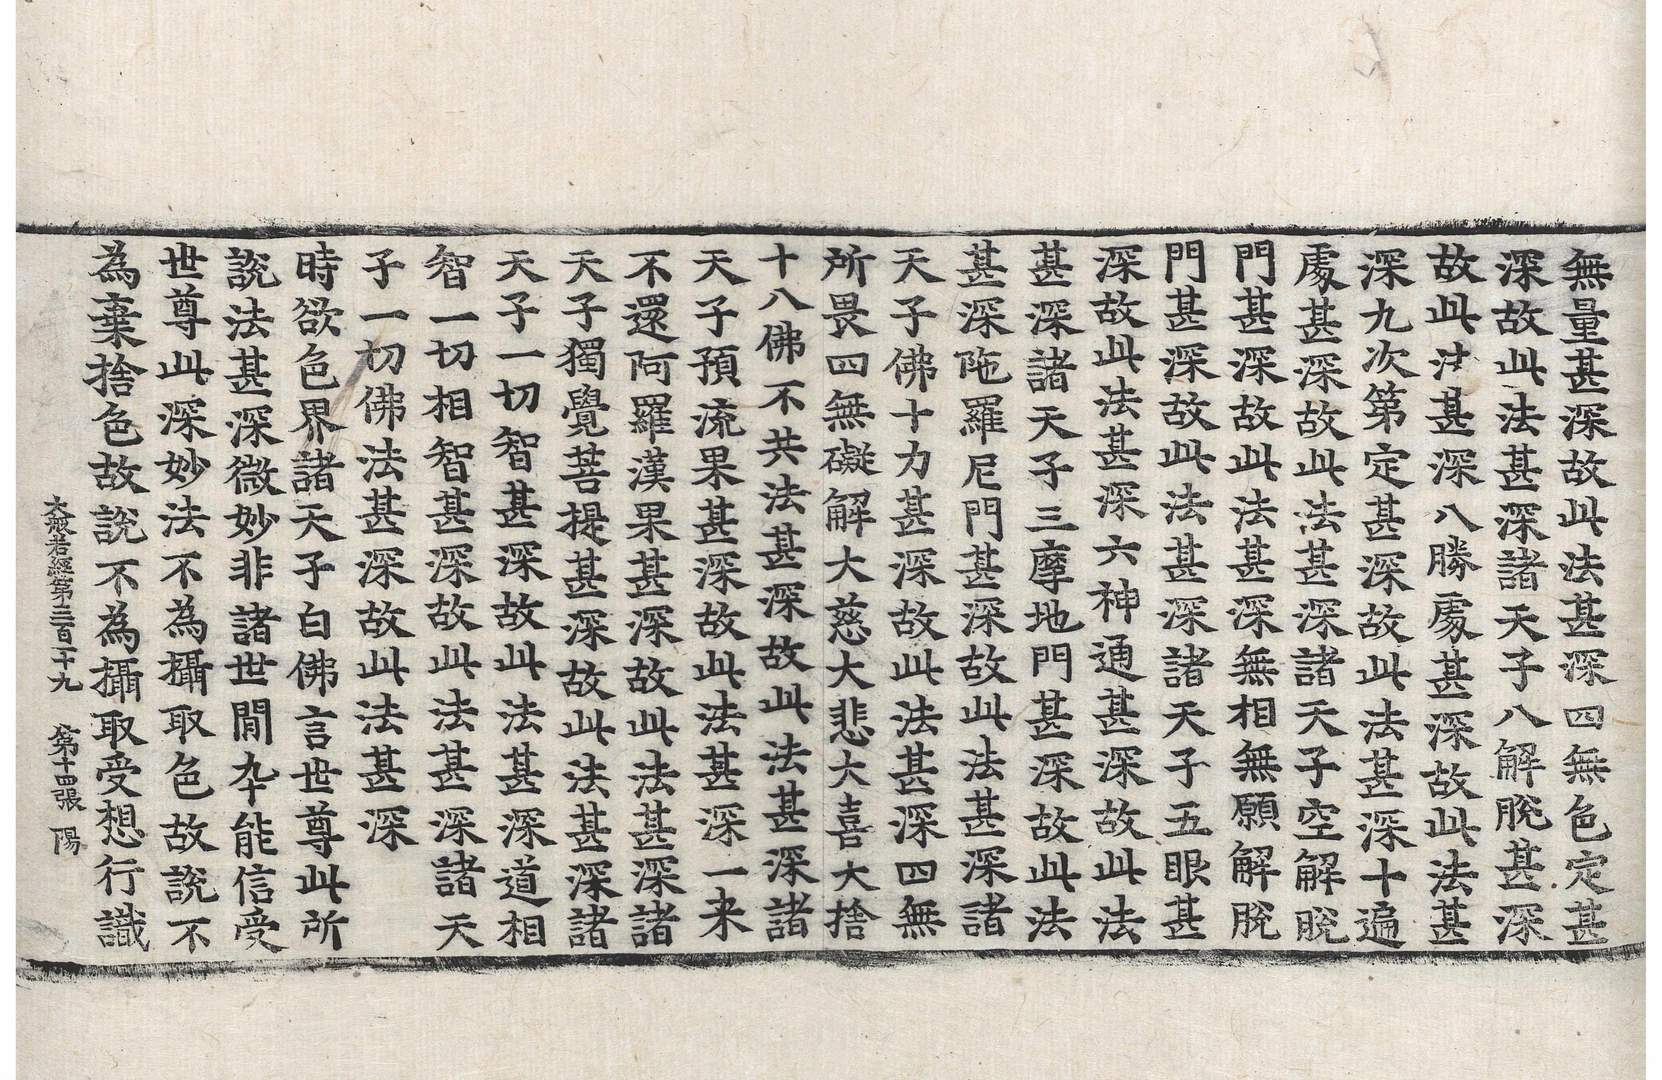 無量甚深故此法甚深四無色定甚
深故此法甚深諸天子八解脫甚深
故此法甚深八勝處甚深故此法甚
深九次第定甚深故此法甚深十遍
處甚深故此法甚深諸天子空解脫
門甚深故此法甚深無相無願解脫
門甚深故此法甚深諸天子五眼甚
深故此法甚深六神通甚深故此法
甚深諸天子三摩地門甚深故此法
甚深陁羅尼門甚深故此法甚深諸
天子佛十力甚深故此法甚深四無
所畏四無礙解大慈大悲大喜大捨
十八佛不共法甚深故此法甚深諸
天子預流果甚深故此法甚深一来
不還阿羅漢果甚深故此法甚深諸
天子獨覺菩提甚深故此法甚深諸
天子一切智甚深故此法甚深道相
智一切相智甚深故此法甚深諸天
子一切佛法甚深故此法甚深
時欲色界諸天子白佛言世尊此所
說法甚深微妙非諸世間卒能信受
世尊此深妙法不為攝取色故說不
為棄捨色故說不為攝取受想行識
大般若經第三百二十九 第十四張 陽